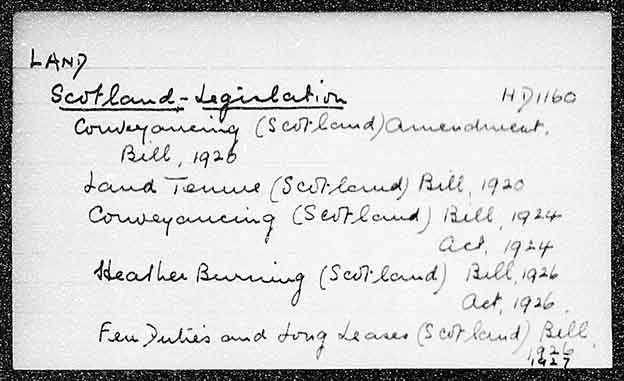 LAND
Scotland - Legislation HD1160
Conveyancing (Scotland) Amendment.
Bill, 1926
Land Tenure (Scotland) Bill, 1920
Conveyancing (Scotland) Bill, 1924
Act, 1924
Heather Burning (Scotland) Bill, 1926
Act, 1926.
Feu Duties and Long Leases (Scotland) Bill,
1926
1927